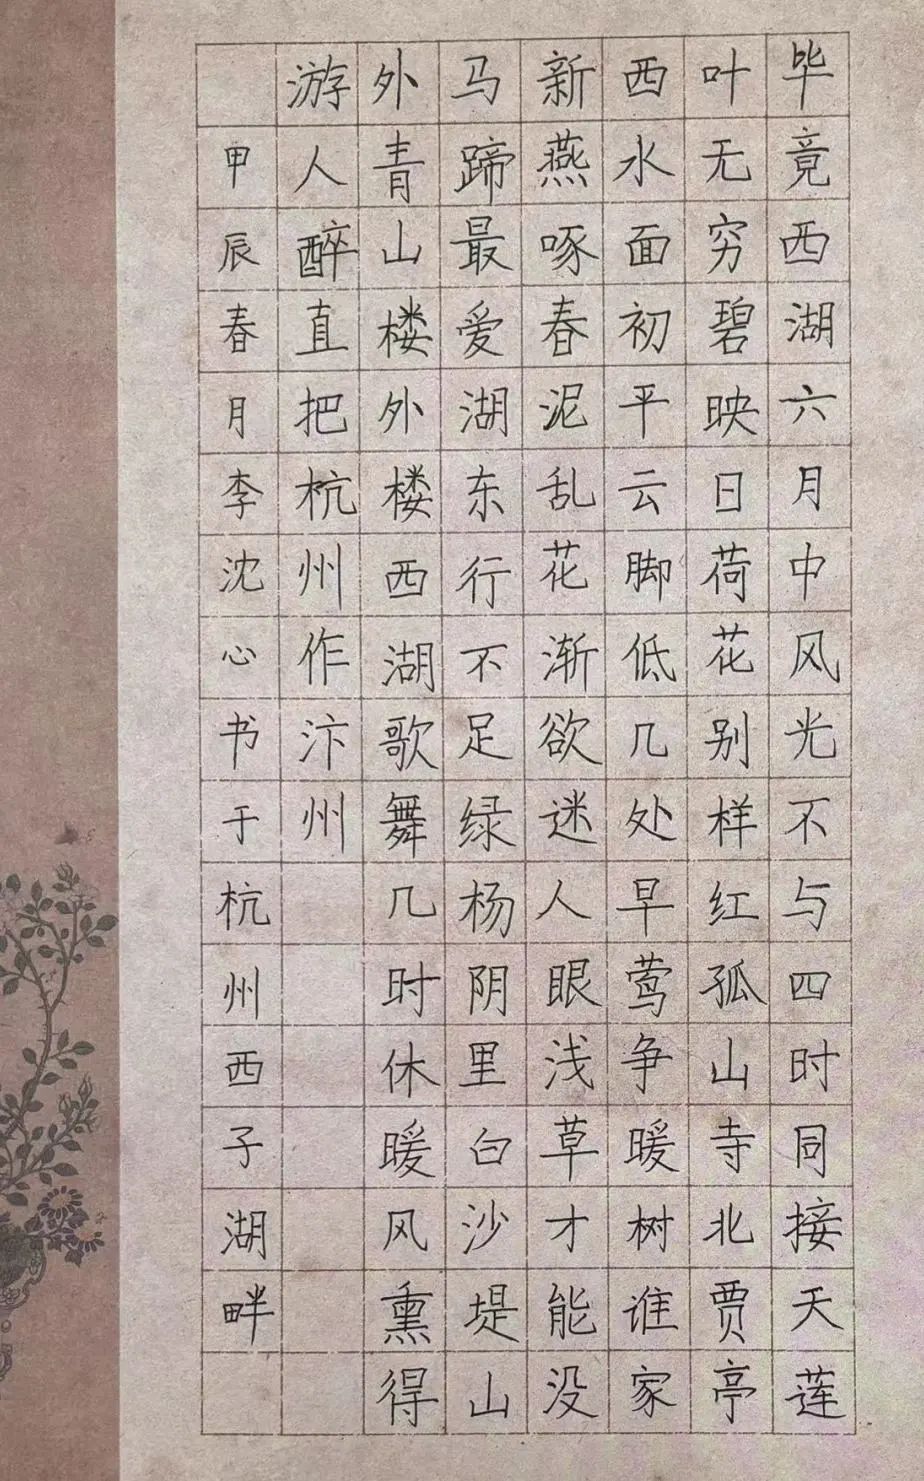 毕竟西湖六月中风光不与四时同接天莲
叶无穷碧映日荷花别样红孤山寺北贾亭
西水面初平云脚低几处早莺争暖树谁家
新燕啄春泥乱花渐欲迷人眼浅草才能没
马蹄最爱湖东行不足绿杨阴里白沙堤山
外青山楼外楼西湖歌舞几时休暖风熏得
游人醉直把杭州作汴州
甲辰春月李沈心书于杭州西子湖畔